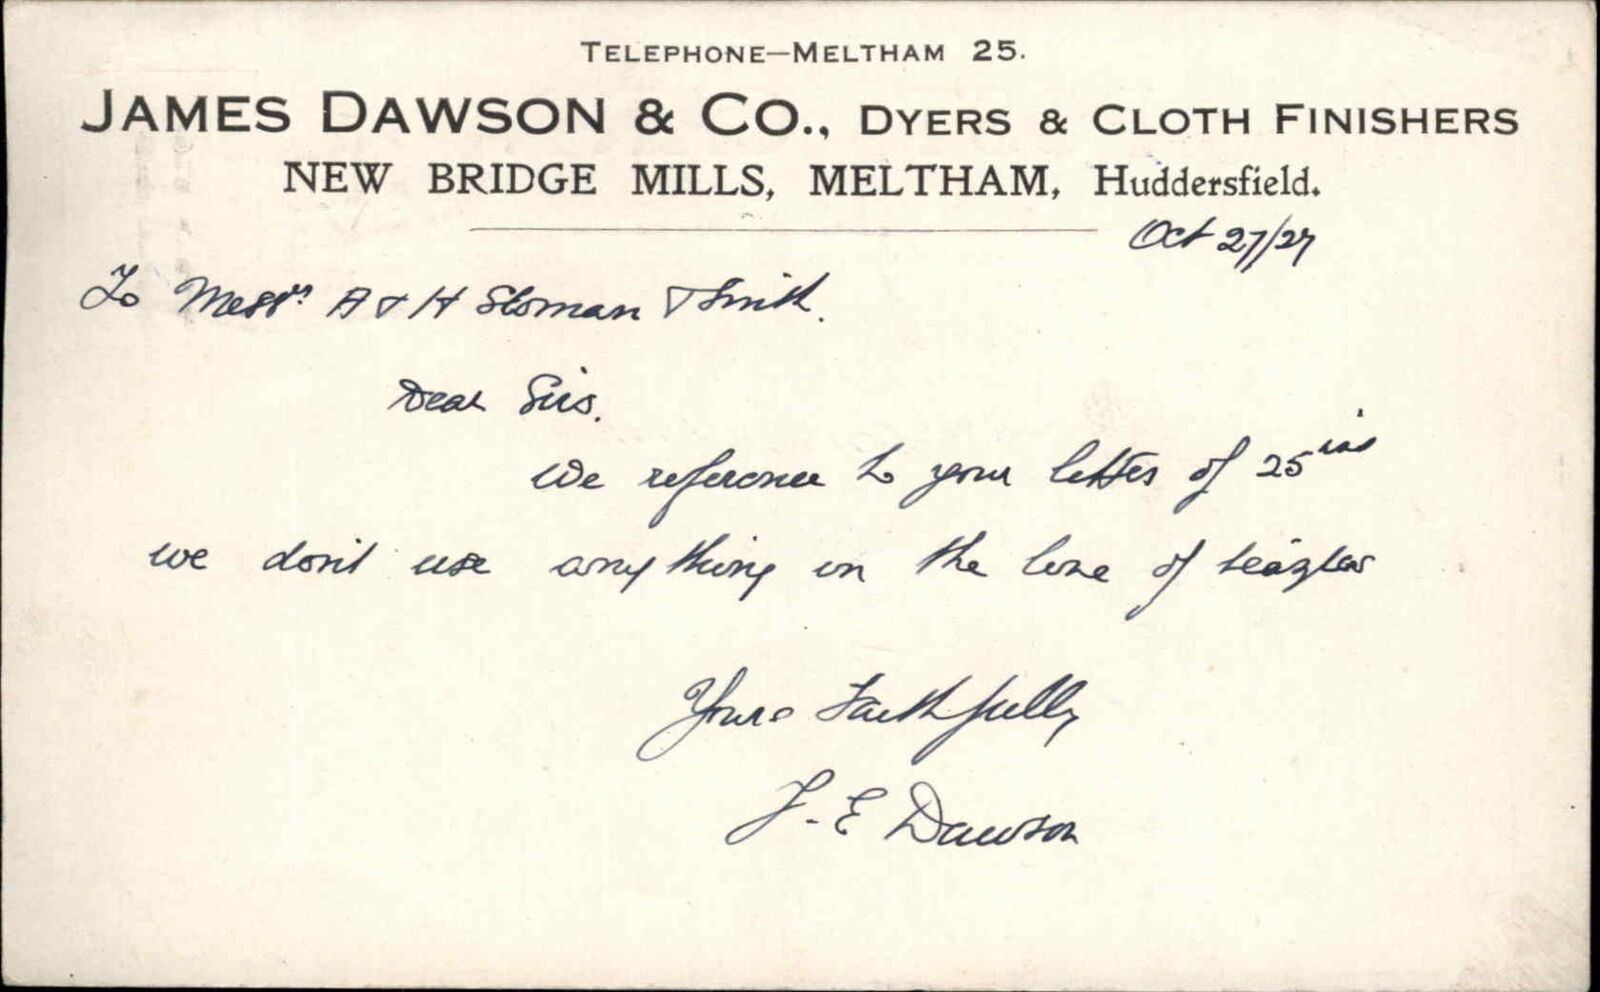 TELEPHONE—MELTHAM 25.
JAMES DAWSON & CO., DYERS & CLOTH FINISHERS
NEW BRIDGE MILLS, MELTHAM, Huddersfield.
Oct 27/27
To Messrs A & H Sloman & Smith.
Dear Sirs.
We reference to your letter of 25 ins
we don't use any thing in the line of
Yours Faithfully
J. E Dawson